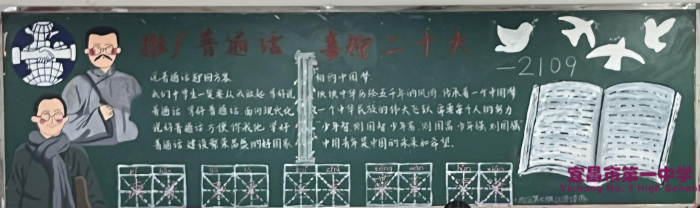 推广普通话 喜迎二十大
—2109
说普通话 迎国方案
我们中学生一定要从我做起 学好说
普通话 学好普通话 面向现代化
说好普通话 方便你我他 学好
普通话 建设繁荣昌盛的好国家
相约中国梦
中华 五千年的风雨 传承着一个中国梦
一个中华民族的伟大飞跃 需要每个人的努力
少年智则国智 少年富则国富 少年强则国强
中国青年是中国的未来和希望
宜昌市第一中学
Yichang No. 1 High School